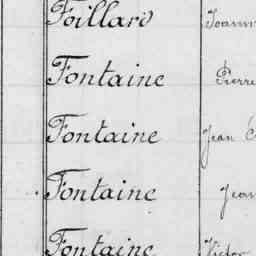 Foillard Joann
Fontaine Pierre
Fontaine Jean
Fontaine Jean
Fontaine Victor